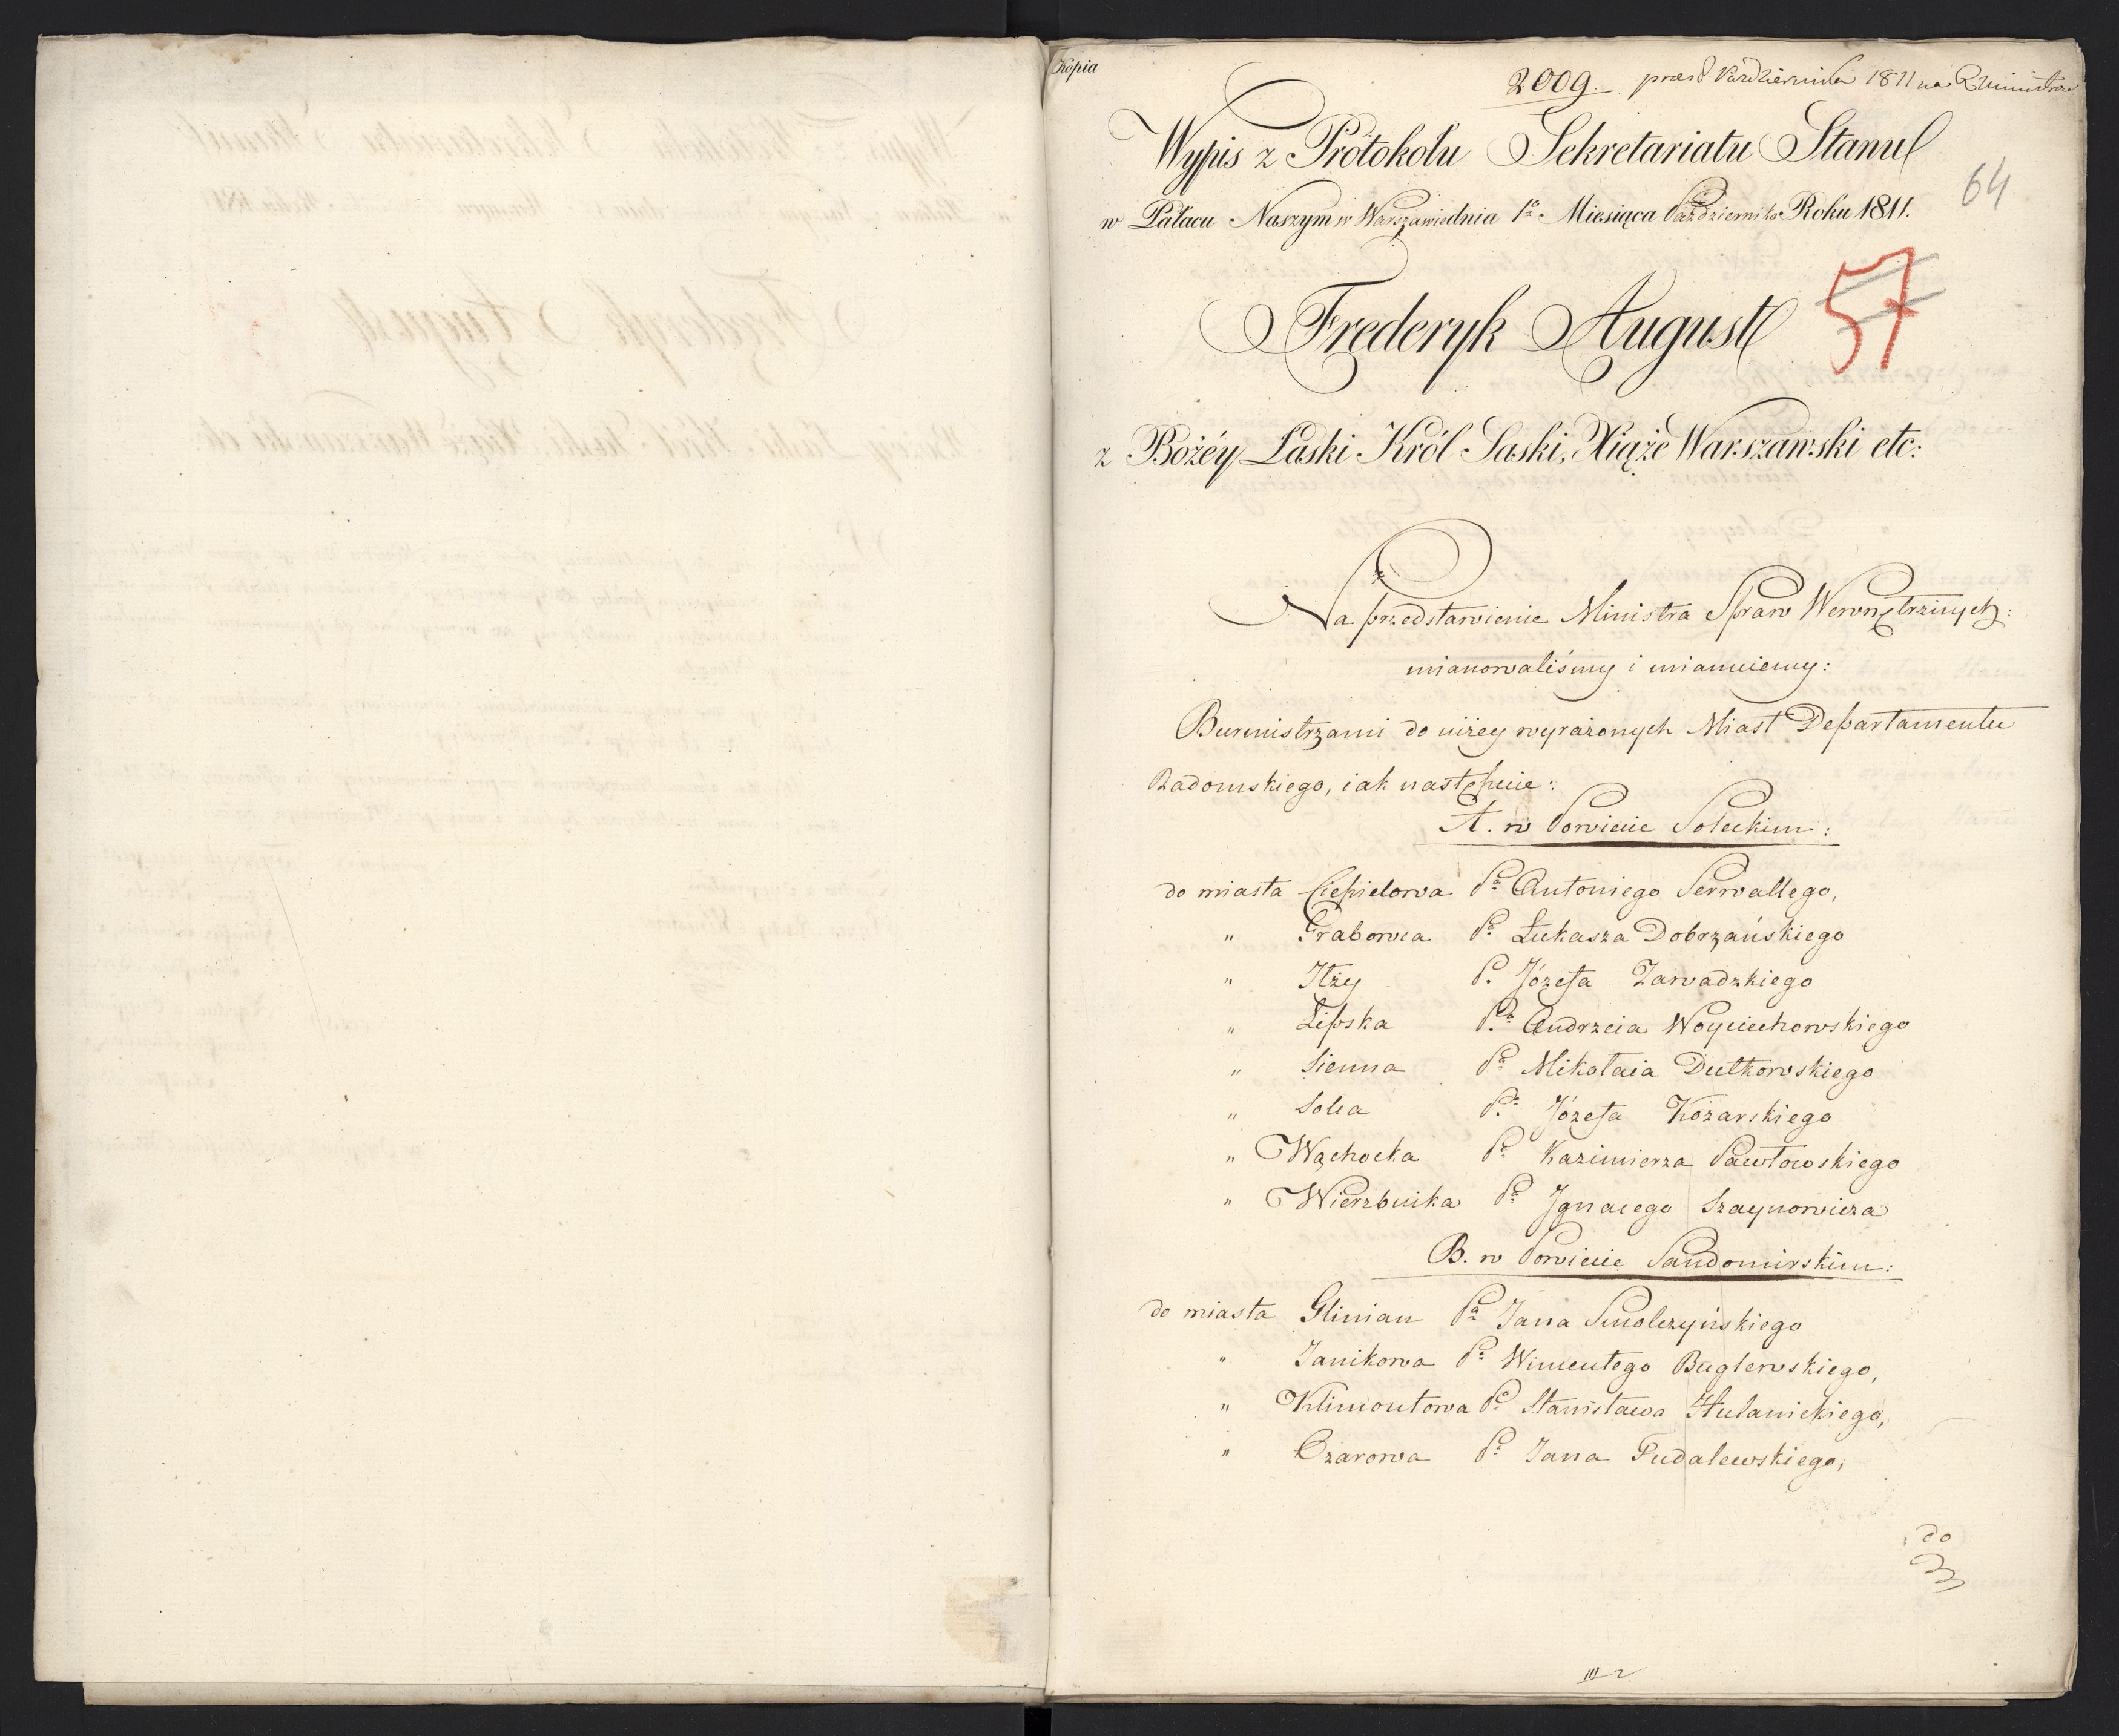 Kópia
2009. prae 8 Października 1811 na R Ministrów
64
Wypis z Protokołu Sekretariatu Stanu
w Pałacu Naszym w Warszawie dnia 1º Miesiąca Października Roku 1811.
57
Frederyk August
z Bożéy Łaski Król Saski, Xiąże Warszawski etc:
Na przedstawienie Ministra Spraw Wewnętrznych:
mianowaliśmy i mianuiemy:
Burmistrzami do niżey wyrażonych Miast Departamentu
Radomskiego, iak następuie:
A. w Powiecie Soleckim:
do miasta Ciepielowa Pª Antoniego Serwallego,
" Grabowca Pª Łukasza Dobrzańskiego
" Iłży P. Józefa Zawadzkiego
" Lipska Pª Andrzeia Woyciechowskiego
" Sienna Pª Mikołaia Dutkowskiego
" Solca Pª Józefa Kożarskiego
" Wąchocka Pª Kazimierza Pawłowskiego
" Wierzbnika Pª Ignacego Szaynowicza
B. w Powiecie Sandomirskim:
do miasta Glinian Pª Jana Smolczyńskiego
" Janikowa Pª Wincentego Buglewskiego,
" Klimontowa Pª Stanisława Hulanickiego,
" Ożarowa Pª Jana Fudalewskiego,
do